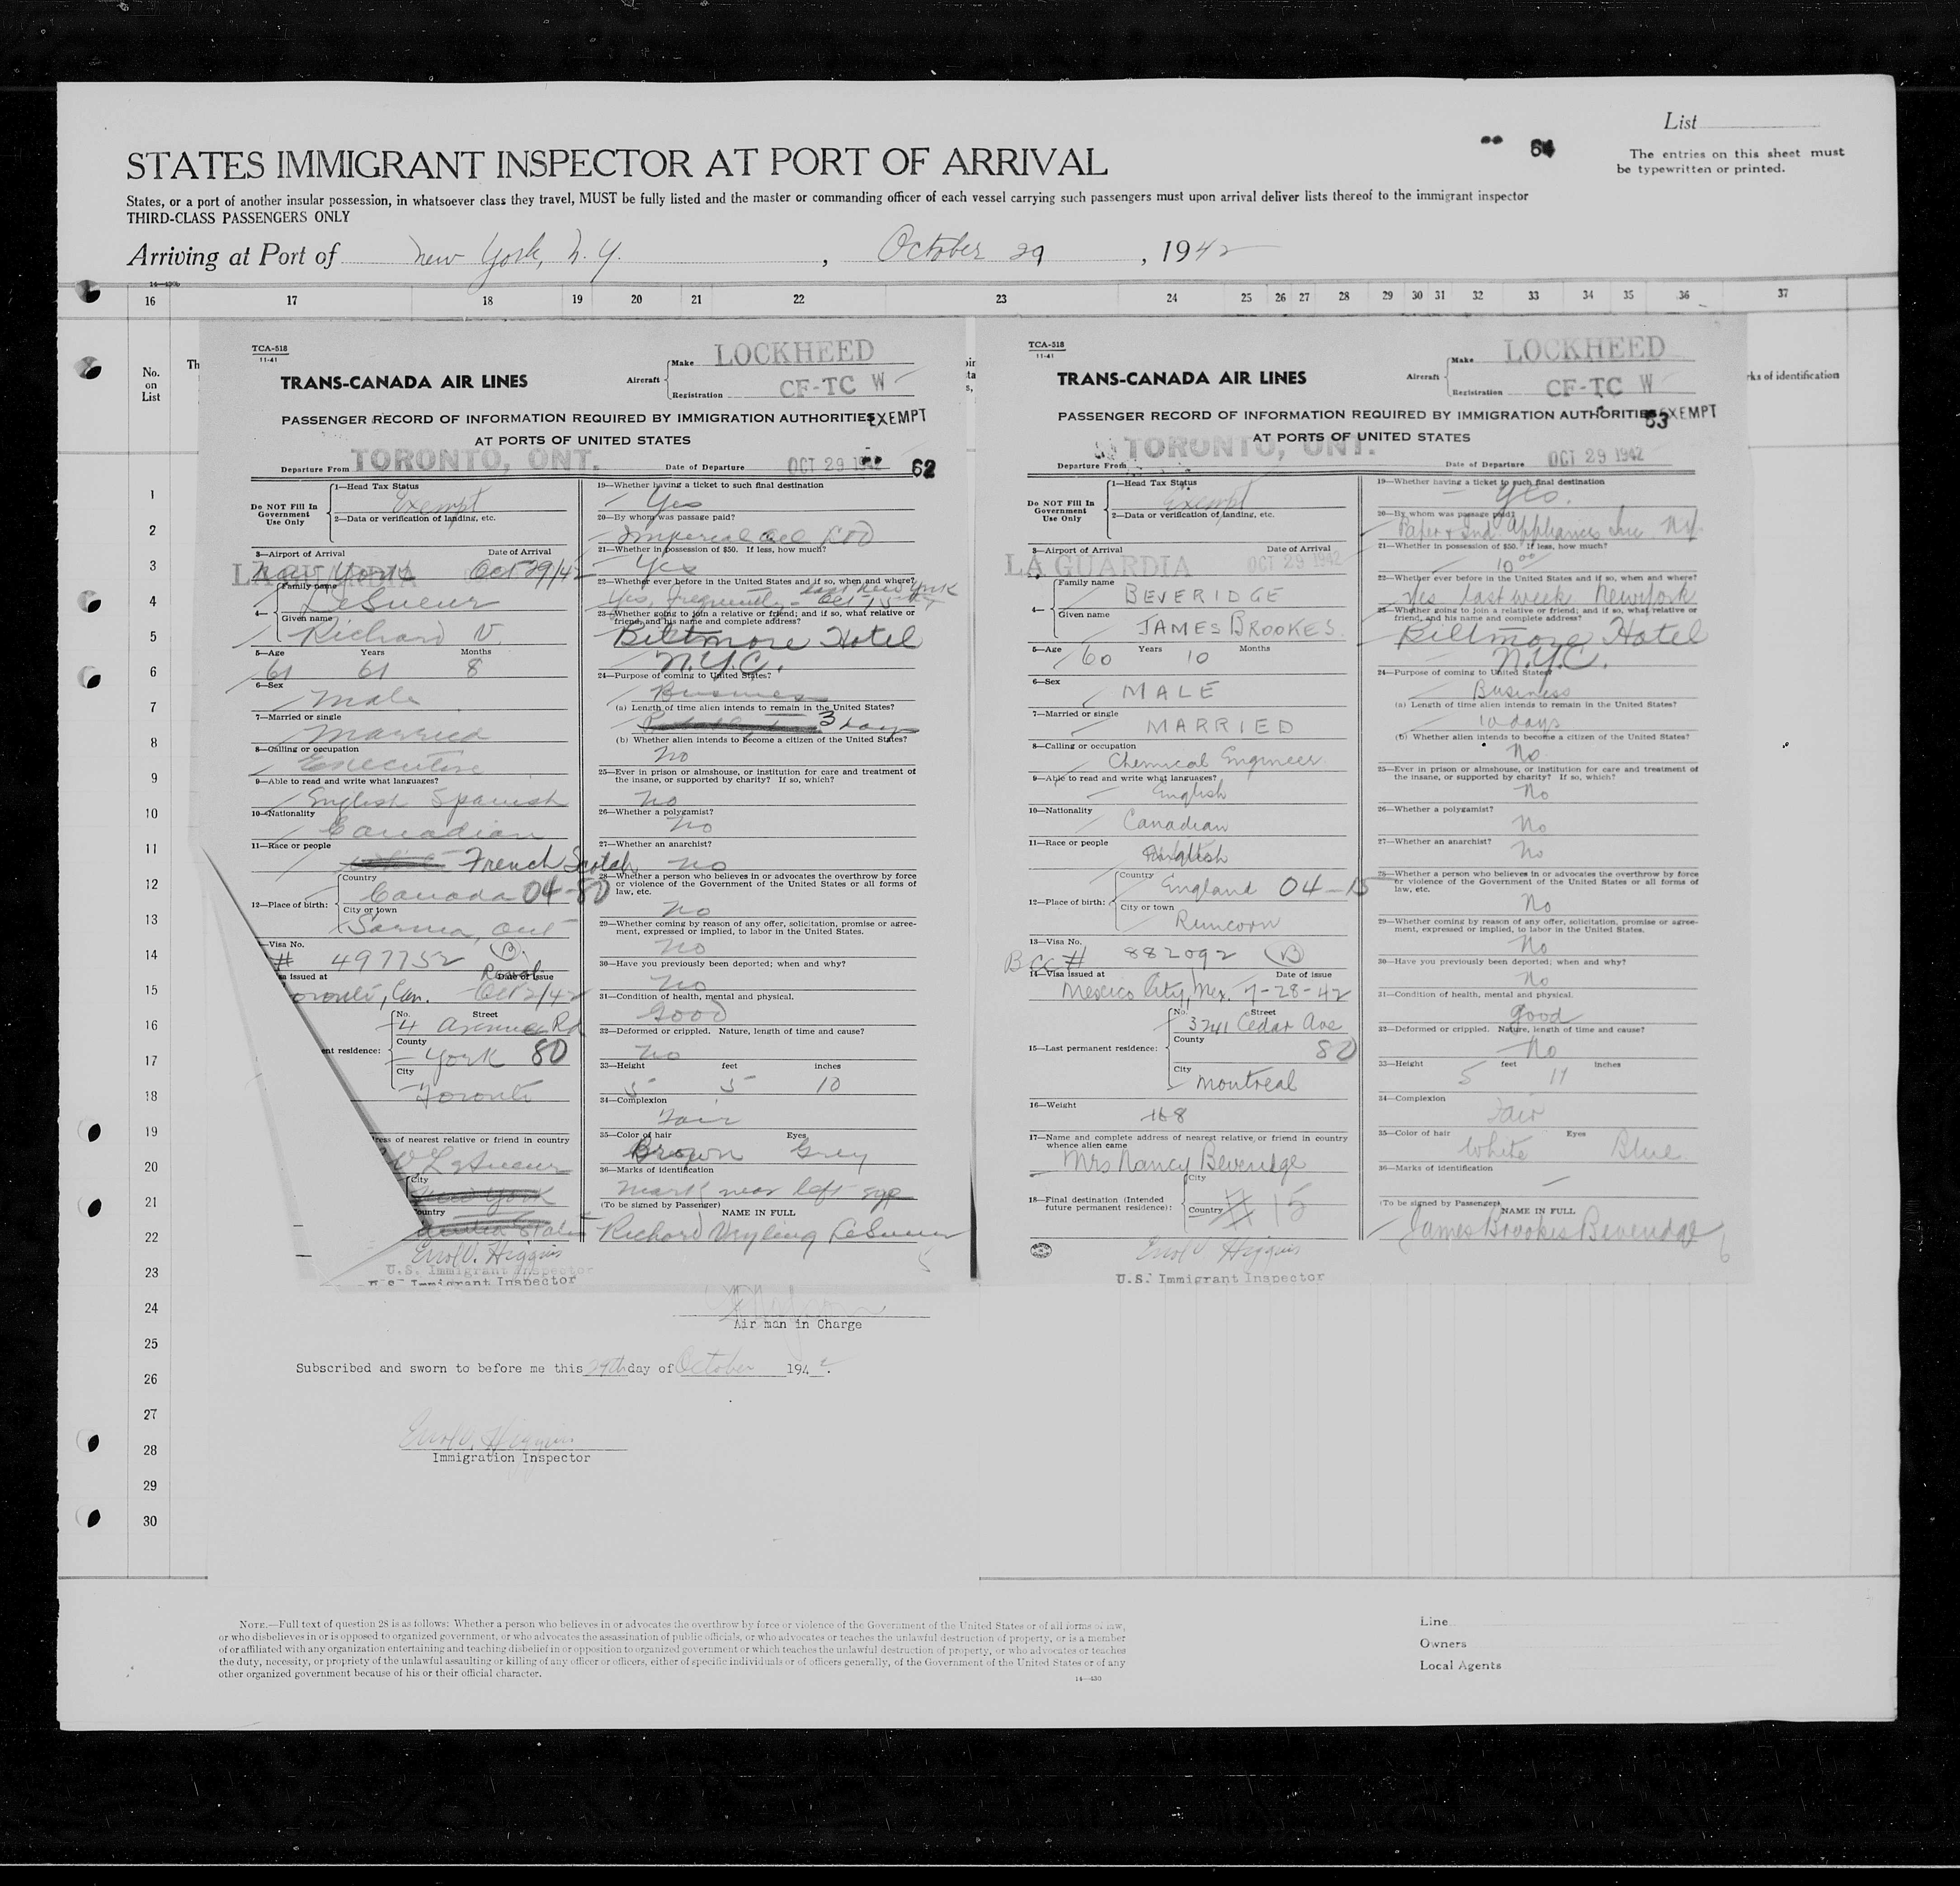 List
64
The entries on this sheet must
be typewritten or printed.
STATES IMMIGRANT INSPECTOR AT PORT OF ARRIVAL
States, or a port of another insular possession, in whatsoever class they travel, MUST be fully listed and the master or commanding officer of each vessel carrying such passengers must upon arrival deliver lists thereof to the immigrant inspector
THIRD-CLASS PASSENGERS ONLY
Arriving at Port of New York, N.Y., October 29, 1942
16 17 18 19 20 21 22 23 24 25 26 27 28 29 30 31 32 33 34 35 36 37
No.
on
List
Th
rks of identification
1
2
3
4
5
6
7
8
9
10
11
12
13
14
15
16
17
18
19
20
21
22
23
24
25
26
27
28
29
30
TCA-518
11-41
TRANS-CANADA AIR LINES
Aircraft
Make LOCKHEED
Registration CF-TC W
PASSENGER RECORD OF INFORMATION REQUIRED BY IMMIGRATION AUTHORITIES
EXEMPT
AT PORTS OF UNITED STATES
Departure From TORONTO, ONT. Date of Departure OCT 29 1942 62
Do NOT Fill In
Government
Use Only
1—Head Tax Status
Exempt
2—Data or verification of landing, etc.
3—Airport of Arrival Date of Arrival
LA GUARDIA
New York Oct 29/42
4—
Family name
LeSueur
Given name
Richard V.
5—Age Years Months
61 61 8
6—Sex
Male
7—Married or single
Married
8—Calling or occupation
Executive
9—Able to read and write what languages?
English Spanish
10—Nationality
Canadian
11—Race or people
French Scotch
12—Place of birth:
Country
Canada 04-80
City or town
Sarnia, Ont
Visa No.
# 497752 (B)
issued at Date of issue
oronto, Can. Oct 2/42
No. Street
4 Avenue Rd
ent residence:
County
York 80
City
Toronto
ress of nearest relative or friend in country
V LeSueur
City
New York
Country
United States
Errol V. Higgins
U.S. Immigrant Inspector
U.S. Immigrant Inspector
19—Whether having a ticket to such final destination
Yes
20—By whom was passage paid?
Imperial Oil Ltd
21—Whether in possession of $50. If less, how much?
Yes
22—Whether ever before in the United States and if so, when and where?
Yes, frequently - last New York
Oct 15
23—Whether going to join a relative or friend; and if so, what relative or
friend, and his name and complete address?
Biltmore Hotel
N.Y.C.
24—Purpose of coming to United States?
Business
(a) Length of time alien intends to remain in the United States?
3 days
(b) Whether alien intends to become a citizen of the United States?
No
25—Ever in prison or almshouse, or institution for care and treatment of
the insane, or supported by charity? If so, which?
No
26—Whether a polygamist?
No
27—Whether an anarchist?
No
28—Whether a person who believes in or advocates the overthrow by force
or violence of the Government of the United States or all forms of
law, etc.
No
29—Whether coming by reason of any offer, solicitation, promise or agree-
ment, expressed or implied, to labor in the United States.
No
30—Have you previously been deported; when and why?
No
31—Condition of health, mental and physical.
Good
32—Deformed or crippled. Nature, length of time and cause?
No
33—Height feet inches
5 5 10
34—Complexion
Fair
35—Color of hair Eyes
Brown Grey
36—Marks of identification
Mark near left eye
(To be signed by Passenger)
NAME IN FULL
Richard Vryling LeSueur
5
TCA-518
11-41
TRANS-CANADA AIR LINES
Aircraft
Make LOCKHEED
Registration CF-TC W
PASSENGER RECORD OF INFORMATION REQUIRED BY IMMIGRATION AUTHORITIES
63 EXEMPT
AT PORTS OF UNITED STATES
TORONTO, ONT.
Departure From Date of Departure OCT 29 1942
Do NOT Fill In
Government
Use Only
1—Head Tax Status
Exempt
2—Data or verification of landing, etc.
3—Airport of Arrival Date of Arrival
LA GUARDIA OCT 29 1942
4—
Family name
BEVERIDGE
Given name
JAMES BROOKES
5—Age Years Months
60 10
6—Sex
MALE
7—Married or single
MARRIED
8—Calling or occupation
Chemical Engineer
9—Able to read and write what languages?
English
10—Nationality
Canadian
11—Race or people
English
12—Place of birth:
Country
England 04-15
City or town
Runcorn
13—Visa No.
BCC # 882092 (B)
14—Visa issued at Date of issue
Mexico City, Mex. 7-28-42
15—Last permanent residence:
No. Street
3241 Cedar Ave
County
80
City
Montreal
16—Weight
168
17—Name and complete address of nearest relative or friend in country
whence alien came
Mrs Nancy Beveridge
18—Final destination (Intended
future permanent residence):
City
Country
15
Errol V. Higgins
U.S. Immigrant Inspector
19—Whether having a ticket to such final destination
Yes.
20—By whom was passage paid?
Paper & Ind. Appliances Inc. N.Y.
21—Whether in possession of $50. If less, how much?
10 00
22—Whether ever before in the United States and if so, when and where?
Yes last week New York
23—Whether going to join a relative or friend; and if so, what relative or
friend, and his name and complete address?
Biltmore Hotel
N.Y.C.
24—Purpose of coming to United States?
Business
(a) Length of time alien intends to remain in the United States?
10 days
(b) Whether alien intends to become a citizen of the United States?
No
25—Ever in prison or almshouse, or institution for care and treatment of
the insane, or supported by charity? If so, which?
No
26—Whether a polygamist?
No
27—Whether an anarchist?
No
28—Whether a person who believes in or advocates the overthrow by force
or violence of the Government of the United States or all forms of
law, etc.
No
29—Whether coming by reason of any offer, solicitation, promise or agree-
ment, expressed or implied, to labor in the United States.
No
30—Have you previously been deported; when and why?
No
31—Condition of health, mental and physical.
Good
32—Deformed or crippled. Nature, length of time and cause?
No
33—Height feet inches
5 11
34—Complexion
Fair
35—Color of hair Eyes
White Blue
36—Marks of identification
—
(To be signed by Passenger)
NAME IN FULL
James Brookes Beveridge
6
Air man in Charge
Subscribed and sworn to before me this 29th day of October 1942.
Errol V. Higgins
Immigration Inspector
NOTE.—Full text of question 28 is as follows: Whether a person who believes in or advocates the overthrow by force or violence of the Government of the United States or of all forms of law,
or who disbelieves in or is opposed to organized government, or who advocates the assassination of public officials, or who advocates or teaches the unlawful destruction of property, or is a member
of or affiliated with any organization entertaining and teaching disbelief in or opposition to organized government or which teaches the unlawful destruction of property, or who advocates or teaches
the duty, necessity, or propriety of the unlawful assaulting or killing of any officer or officers, either of specific individuals or of officers generally, of the Government of the United States or of any
other organized government because of his or their official character.
14—430
Line
Owners
Local Agents